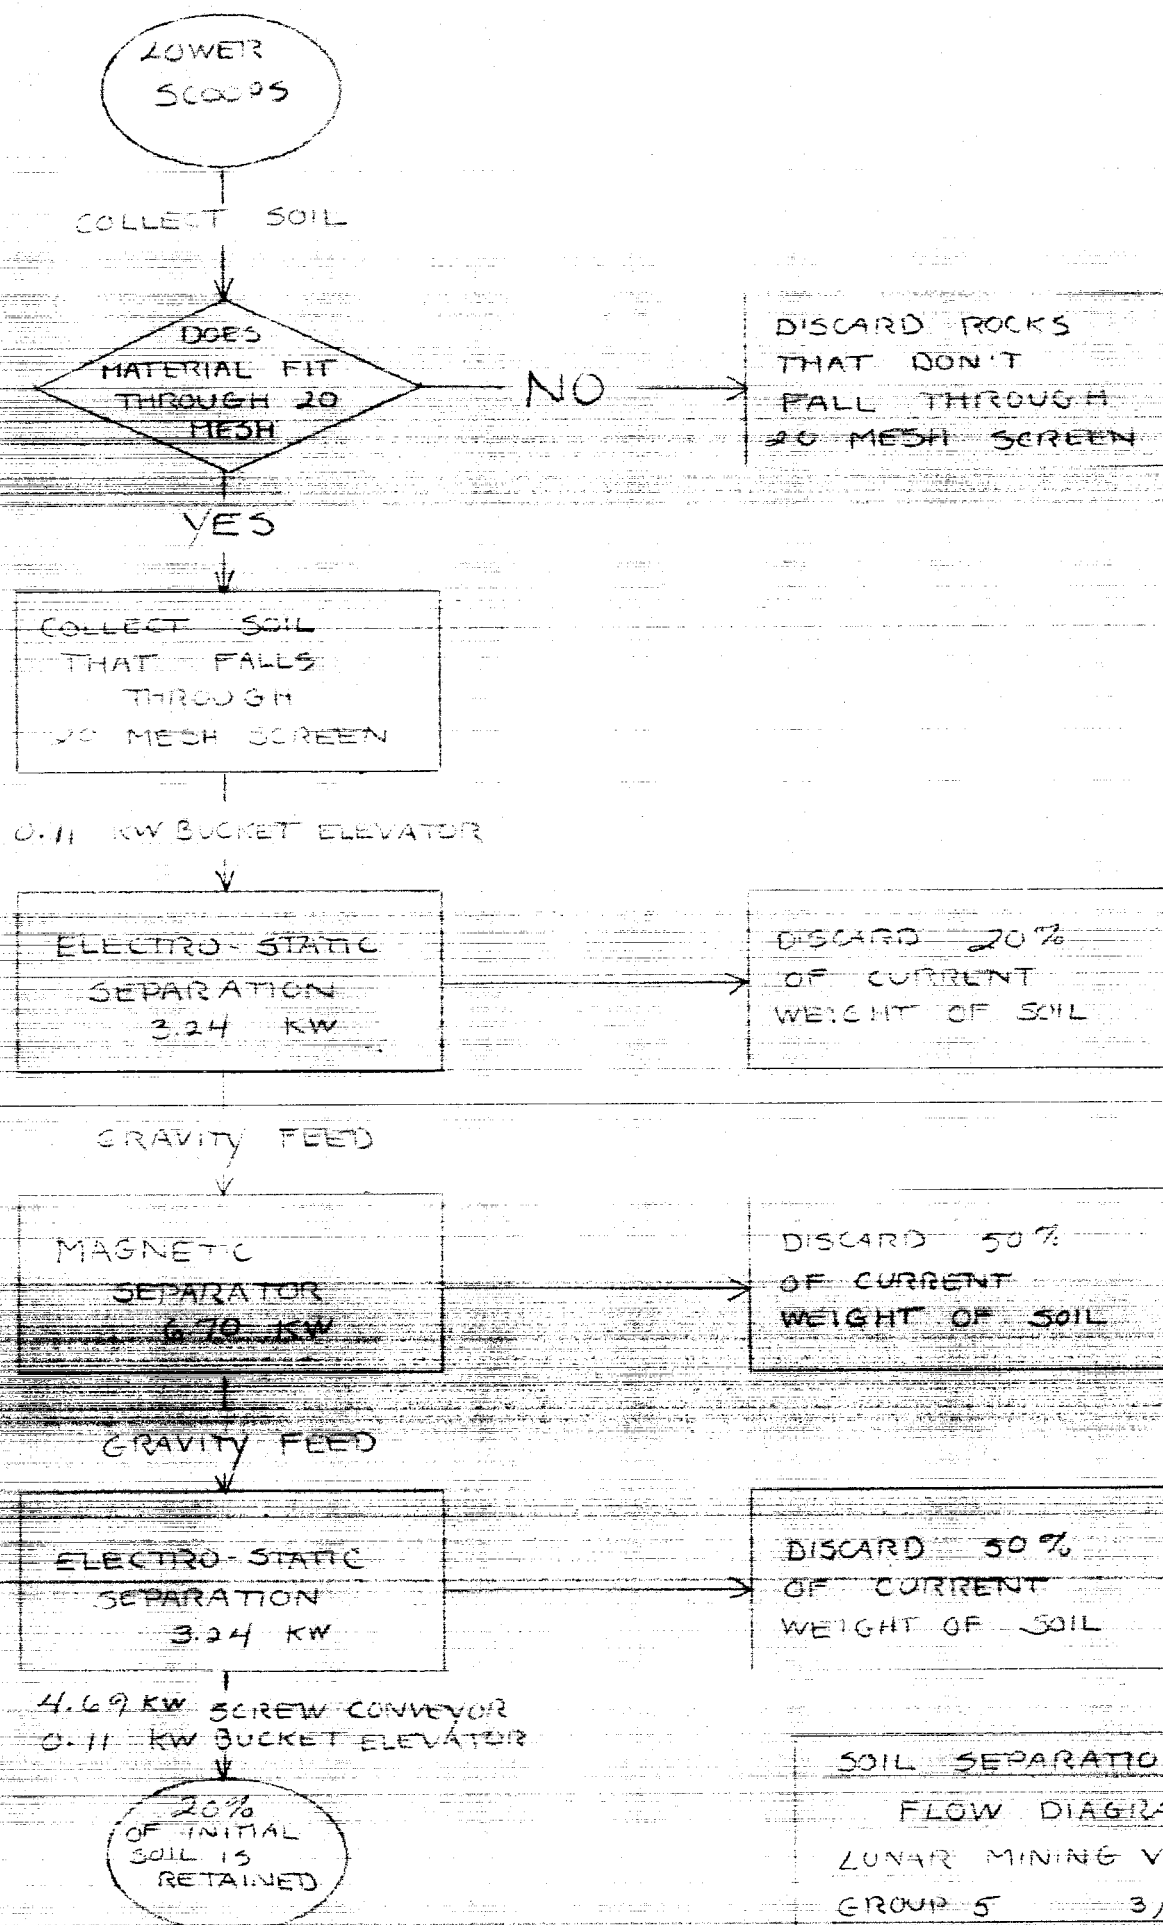 LOWER
SCOOPS
COLLECT SOIL
DOES
MATERIAL FIT
THROUGH 20
MESH
NO
DISCARD ROCKS
THAT DON'T
FALL THROUGH
20 MESH SCREEN
YES
COLLECT SOIL
THAT FALLS
THROUGH
20 MESH SCREEN
0.11 KW BUCKET ELEVATOR
ELECTRO-STATIC
SEPARATION
3.24 KW
DISCARD 20%
OF CURRENT
WEIGHT OF SOIL
GRAVITY FEED
MAGNETIC
SEPARATOR
6.70 KW
DISCARD 50%
OF CURRENT
WEIGHT OF SOIL
GRAVITY FEED
ELECTRO-STATIC
SEPARATION
3.24 KW
DISCARD 50%
OF CURRENT
WEIGHT OF SOIL
4.69 KW SCREW CONVEYOR
0.11 KW BUCKET ELEVATOR
20%
OF INITIAL
SOIL IS
RETAINED
SOIL SEPARATIO
FLOW DIAGRA
LUNAR MINING V
GROUP 5 3/